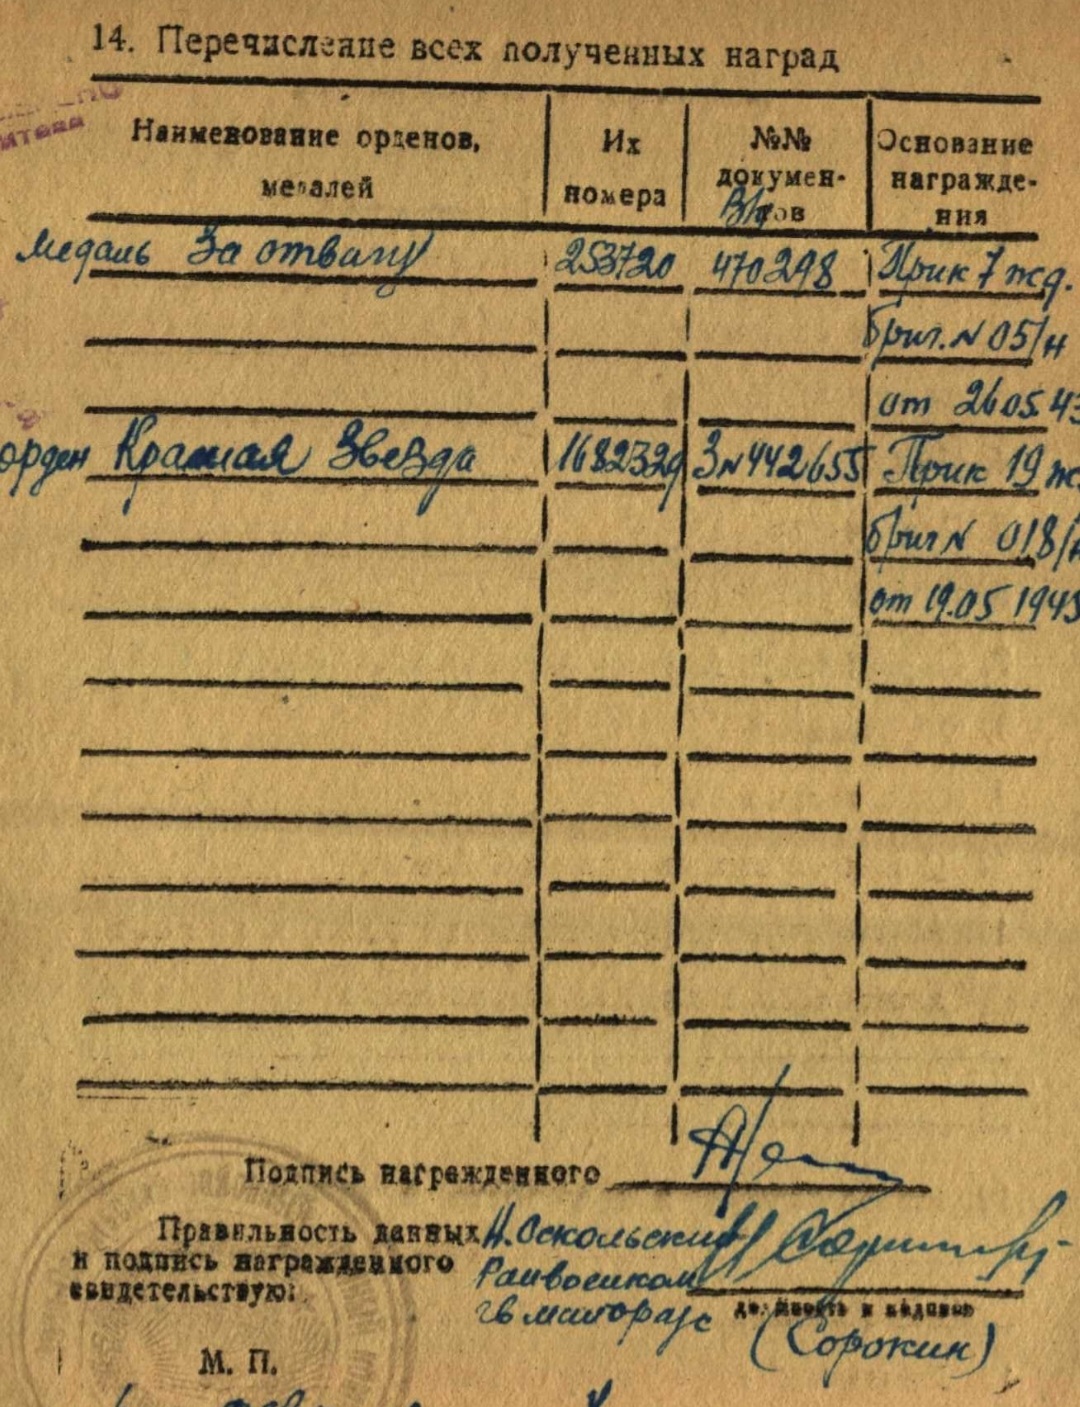 14. Перечисление всех полученных наград
Наименование орденов, медалей
Их номера
№№ документов
Основание награждения
медаль За отвагу 253720 470298 Прик 7 жд.
бриг. N 05/н
от 26 05 43
орден Красная Звезда 1682329 З N 442655 Прик 19 ж
бриг N 018/н
от 19.05 1945
Подпись награжденного
Правильность данных Н. Оскольский
и подпись награжденного Райвоенком
свидетельствую: гв майор
должность и подпись
(Сорокин)
М. П.